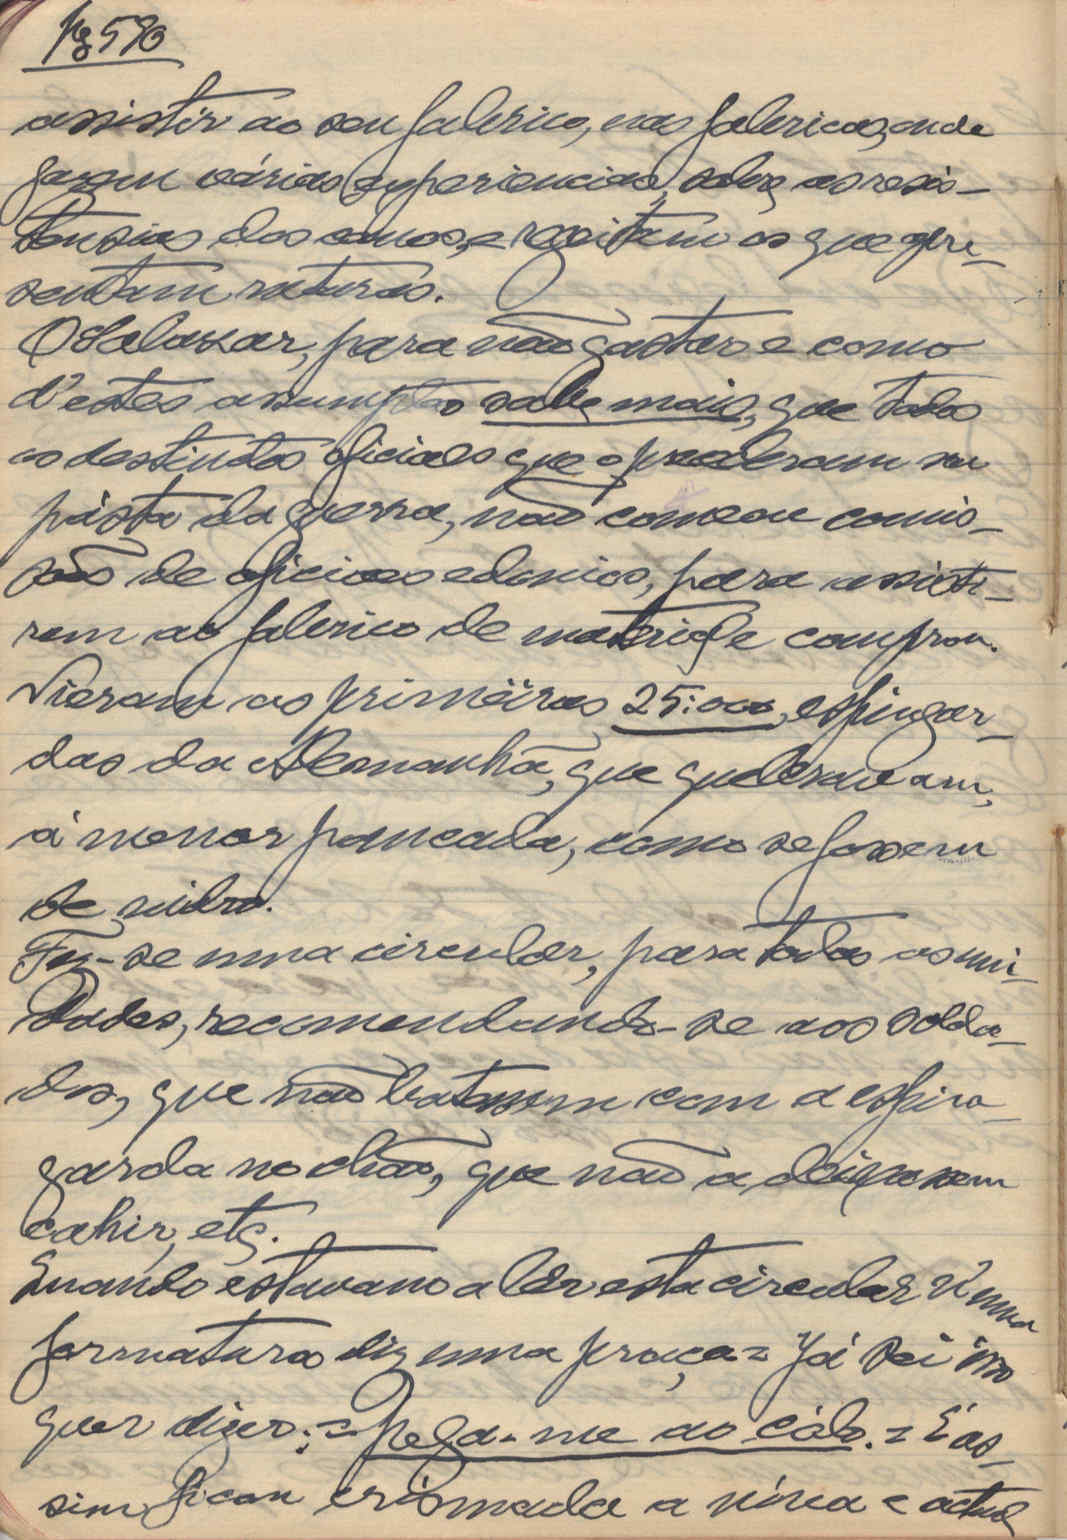 Pg 590
assistir ao seu fabrico, nas fabricas, onde
fazem várias experiencias, sobre as resis-
tencias dos canos, e regeitam os que apre-
sentam roturas.
O Salazar, para não gastar e como
d'estes assumptos sabe mais, que todos
os destintos oficiaes que o precederam na
pásta da guerra, não nomeou comis-
são de oficiaes edonios, para assisti-
rem ao fabrico de material e comprou.
Vieram as primeiras 25:000, espingar-
das da Alemanhã, que quebravam,
á menor pancada, como se fossem
de vidro.
Fez-se uma circular, para todas as uni-
dades, recomendando-se aos solda-
dos, que não batessem com a espin-
garda no chão, que não a deixassem
cahir, etc.
Quando estavam a ler esta circular n'uma
formatura diz uma praça = Já sei isso
quer dizer: = pega-me ao cólo. = E as-
sim ficou crismada a nova e actual